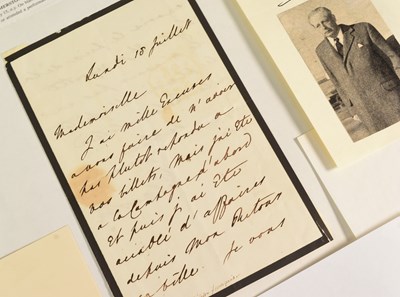 Lundi 18 Juillet
Mademoiselle
J'ai mille Excuses
a vous faire de n'avoir
pas plutot repondu a
vos billets, Mais j'ai Ete
a la Campagne d'abord
Et puis j'ai Ete
accablé d'affaires
depuis mon Retour
Je vous